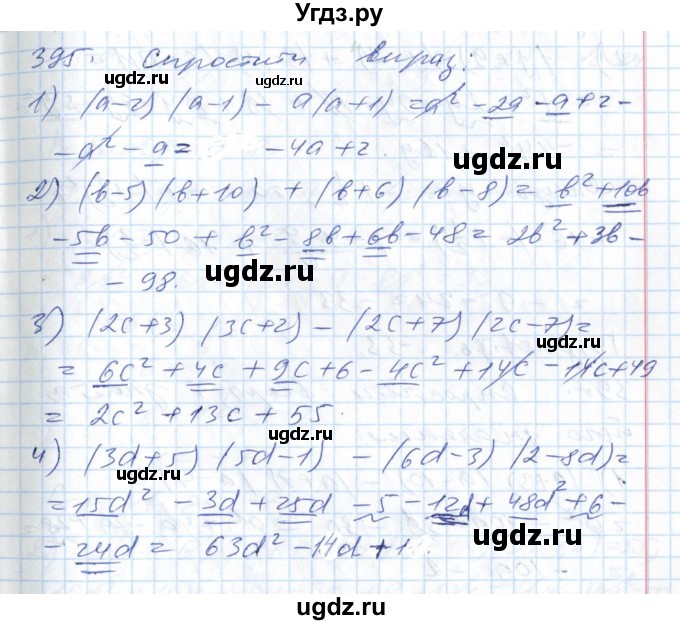 Угдз.ру
395. Спростити вираз:
1) (a-2) (a-1) - a(a+1) = a² - 2a - a + 2 -
- a² - a = - 4a + 2.
2) (b-5) (b+10) + (b+6) (b-8) = b² + 10b
- 5b - 50 + b² - 8b + 6b - 48 = 2b² + 3b -
- 98.
3) (2c+3) (3c+2) - (2c+7) (2c-7) =
= 6c² + 4c + 9c + 6 - 4c² + 14c - 14c + 49
= 2c² + 13c + 55.
4) (3d+5) (5d-1) - (6d-3) (2-8d) =
= 15d² - 3d + 25d - 5 - 12d + 48d² + 6 -
- 24d = 63d² - 14d + 1.
ugdz.ru
ugdz.ru
ugdz.ru
ugdz.ru
ugdz.ru
ugdz.ru
ugdz.ru
ugdz.ru
ugdz.ru
ugdz.ru
ugdz.ru
ugdz.ru